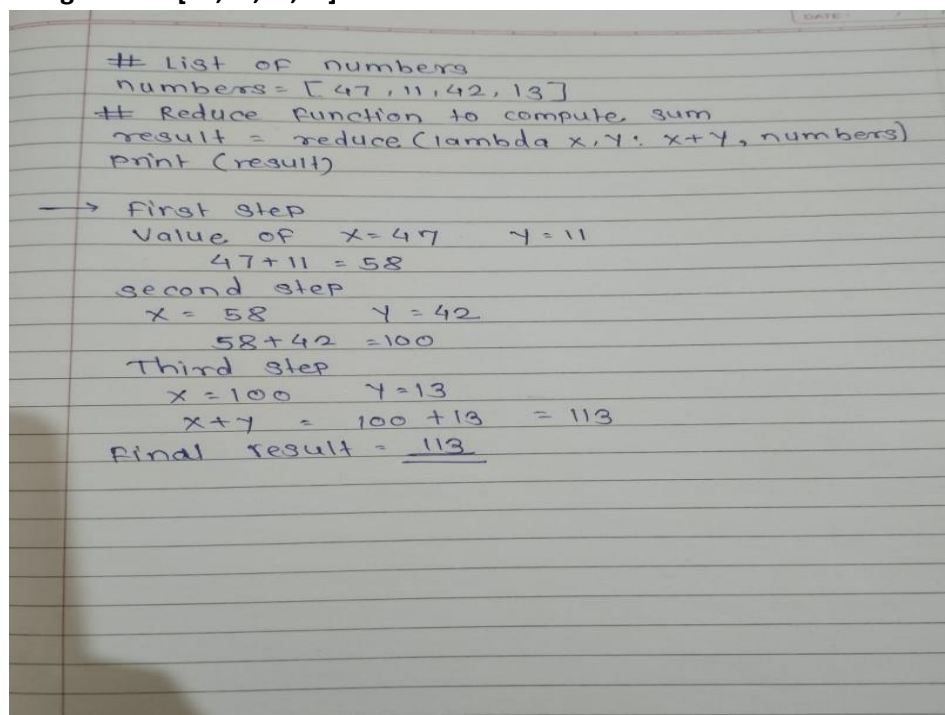 DATE:
# List of numbers
numbers = [47, 11, 42, 13]
# Reduce function to compute sum
result = reduce (lambda x, y: x+y, numbers)
print (result)
→ First step
Value of x=47 y=11
47+11 = 58
second step
x = 58 y = 42
58+42 =100
Third step
x =100 y=13
x+y = 100 +13 = 113
Final result = 113